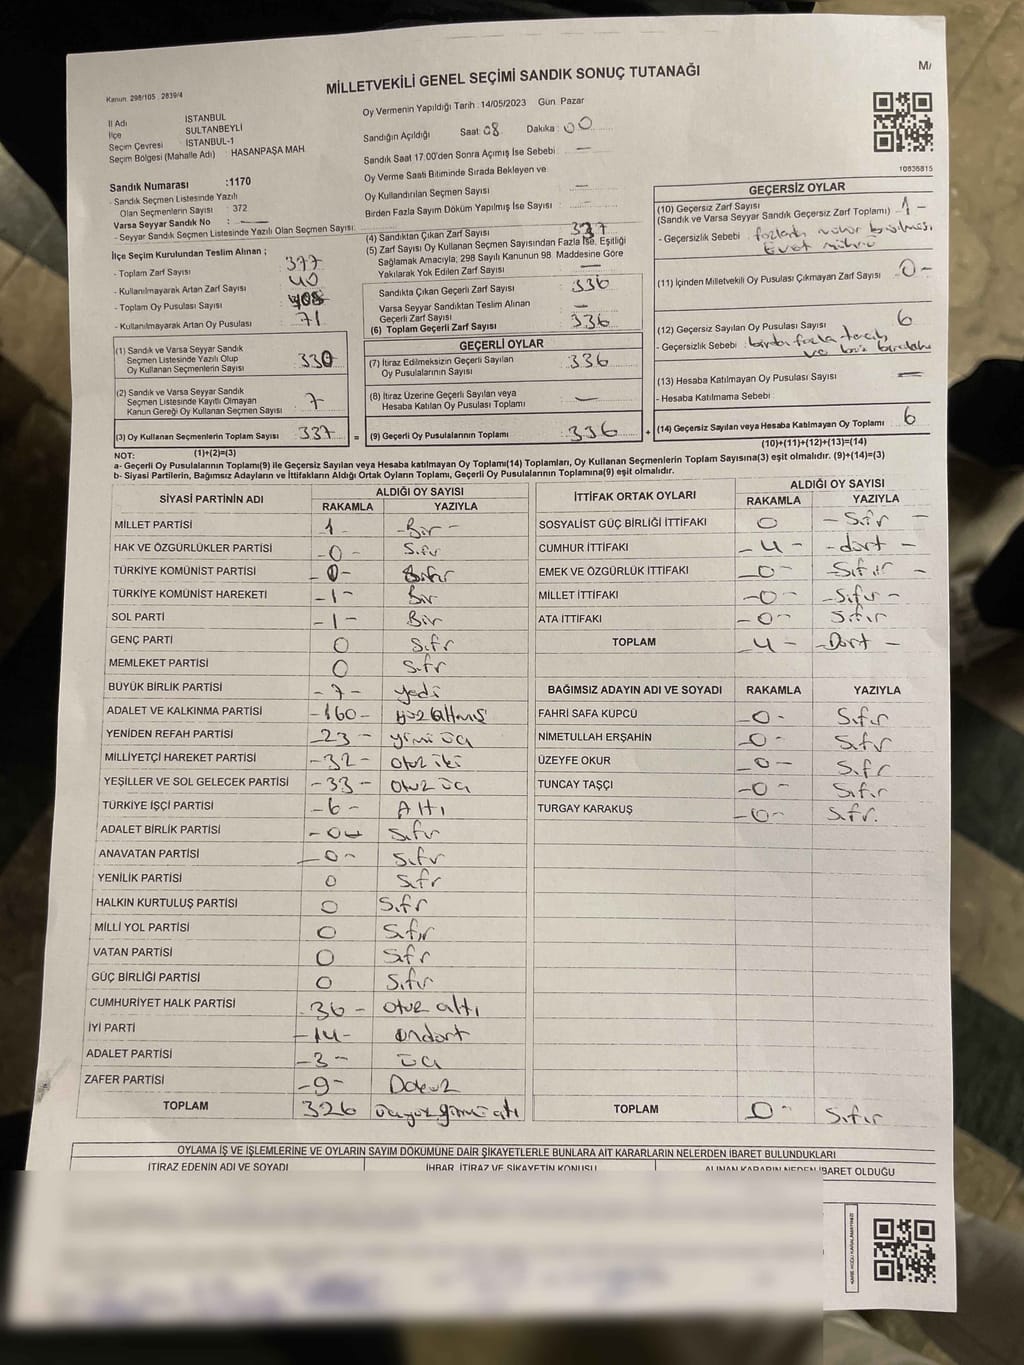 MİLLETVEKİLİ GENEL SEÇİMİ SANDIK SONUÇ TUTANAĞI
Kanun 298/105 2839/4
İl Adı İSTANBUL
İlçe SULTANBEYLİ
Seçim Çevresi İSTANBUL-1
Seçim Bölgesi (Mahalle Adı) HASANPAŞA MAH.
Sandık Numarası :1170
- Sandık Seçmen Listesinde Yazılı
Olan Seçmenlerin Sayısı : 372
Varsa Seyyar Sandık No :
- Seyyar Sandık Seçmen Listesinde Yazılı Olan Seçmen Sayısı:
İlçe Seçim Kurulundan Teslim Alınan ;
- Toplam Zarf Sayısı 377
- Kullanılmayarak Artan Zarf Sayısı 40
- Toplam Oy Pusulası Sayısı 408
- Kullanılmayarak Artan Oy Pusulası 71
(1) Sandık ve Varsa Seyyar Sandık
Seçmen Listesinde Yazılı Olup
Oy Kullanan Seçmenlerin Sayısı 330
(2) Sandık ve Varsa Seyyar Sandık
Seçmen Listesinde Kayıtlı Olmayan
Kanun Gereği Oy Kullanan Seçmen Sayısı 7
(3) Oy Kullanan Seçmenlerin Toplam Sayısı 337 =
(1)+(2)=(3)
Oy Vermenin Yapıldığı Tarih : 14/05/2023 Gün Pazar
Sandığın Açıldığı Saat: 08 Dakika: 00
Sandık Saat 17.00'den Sonra Açılmış İse Sebebi : —
Oy Verme Saati Bitiminde Sırada Bekleyen ve
Oy Kullandırılan Seçmen Sayısı —
Birden Fazla Sayım Döküm Yapılmış İse Sayısı : —
(4) Sandıktan Çıkan Zarf Sayısı 337
(5) Zarf Sayısı Oy Kullanan Seçmen Sayısından Fazla İse, Eşitliği
Sağlamak Amacıyla; 298 Sayılı Kanunun 98. Maddesine Göre
Yakılarak Yok Edilen Zarf Sayısı —
Sandıkta Çıkan Geçerli Zarf Sayısı : 336
Varsa Seyyar Sandıktan Teslim Alınan
Geçerli Zarf Sayısı : —
(6) Toplam Geçerli Zarf Sayısı : 336
GEÇERLİ OYLAR
(7) İtiraz Edilmeksizin Geçerli Sayılan
Oy Pusulalarının Sayısı : 336
(8) İtiraz Üzerine Geçerli Sayılan veya
Hesaba Katılan Oy Pusulası Toplamı —
(9) Geçerli Oy Pusulalarının Toplamı : 336 +
10636815
GEÇERSİZ OYLAR
(10) Geçersiz Zarf Sayısı
(Sandık ve Varsa Seyyar Sandık Geçersiz Zarf Toplamı) : 1 -
- Geçersizlik Sebebi : fazladan mühür basılması
Evet mührü
(11) İçinden Milletvekili Oy Pusulası Çıkmayan Zarf Sayısı : 0 -
(12) Geçersiz Sayılan Oy Pusulası Sayısı : 6
- Geçersizlik Sebebi : birden fazla
(13) Hesaba Katılmayan Oy Pusulası Sayısı : —
- Hesaba Katılmama Sebebi
(14) Geçersiz Sayılan veya Hesaba Katılmayan Oy Toplamı : 6
(10)+(11)+(12)+(13)=(14)
NOT:
a- Geçerli Oy Pusulalarının Toplamı(9) ile Geçersiz Sayılan veya Hesaba katılmayan Oy Toplamı(14) Toplamları, Oy Kullanan Seçmenlerin Toplam Sayısına(3) eşit olmalıdır. (9)+(14)=(3)
b- Siyasi Partilerin, Bağımsız Adayların ve İttifakların Aldığı Ortak Oyların Toplamı, Geçerli Oy Pusulalarının Toplamına(9) eşit olmalıdır.
SİYASİ PARTİNİN ADI ALDIĞI OY SAYISI
RAKAMLA YAZIYLA
MİLLET PARTİSİ 1 - - Bir -
HAK VE ÖZGÜRLÜKLER PARTİSİ - 0 - Sıfır
TÜRKİYE KOMÜNİST PARTİSİ - 0 - Sıfır
TÜRKİYE KOMÜNİST HAREKETİ - 1 - Bir
SOL PARTİ - 1 - Bir
GENÇ PARTİ 0 Sıfır
MEMLEKET PARTİSİ 0 Sıfır
BÜYÜK BİRLİK PARTİSİ - 7 - yedi
ADALET VE KALKINMA PARTİSİ - 160 - yüzaltmış
YENİDEN REFAH PARTİSİ 23 - yirmi üç
MİLLİYETÇİ HAREKET PARTİSİ - 32 - otuz iki
YEŞİLLER VE SOL GELECEK PARTİSİ - 33 - otuz üç
TÜRKİYE İŞÇİ PARTİSİ - 6 - Altı
ADALET BİRLİK PARTİSİ - 0 - Sıfır
ANAVATAN PARTİSİ - 0 - Sıfır
YENİLİK PARTİSİ 0 Sıfır
HALKIN KURTULUŞ PARTİSİ 0 Sıfır
MİLLİ YOL PARTİSİ 0 Sıfır
VATAN PARTİSİ 0 Sıfır
GÜÇ BİRLİĞİ PARTİSİ 0 Sıfır
CUMHURİYET HALK PARTİSİ 36 - otuz altı
İYİ PARTİ - 14 - ondört
ADALET PARTİSİ - 3 - üç
ZAFER PARTİSİ - 9 - Dokuz
TOPLAM 326 üçyüzyirmi altı
İTTİFAK ORTAK OYLARI ALDIĞI OY SAYISI
RAKAMLA YAZIYLA
SOSYALİST GÜÇ BİRLİĞİ İTTİFAKI 0 - Sıfır -
CUMHUR İTTİFAKI - 4 - - dört -
EMEK VE ÖZGÜRLÜK İTTİFAKI - 0 - - Sıfır -
MİLLET İTTİFAKI - 0 - - Sıfır -
ATA İTTİFAKI - 0 - Sıfır
TOPLAM - 4 - - Dört -
BAĞIMSIZ ADAYIN ADI VE SOYADI RAKAMLA YAZIYLA
FAHRİ SAFA KÜPCÜ - 0 - Sıfır
NİMETULLAH ERŞAHİN - 0 - Sıfır
ÜZEYFE OKUR - 0 - Sıfır
TUNCAY TAŞÇI - 0 - Sıfır
TURGAY KARAKUŞ - 0 - Sıfır.
TOPLAM 0 - Sıfır
OYLAMA İŞ VE İŞLEMLERİNE VE OYLARIN SAYIM DÖKÜMÜNE DAİR ŞİKAYETLERLE BUNLARA AİT KARARLARIN NELERDEN İBARET BULUNDUKLARI
İTİRAZ EDENİN ADI VE SOYADI İHBAR, İTİRAZ VE ŞİKAYETİN KONUSU ALINAN KARARIN NEDEN İBARET OLDUĞU